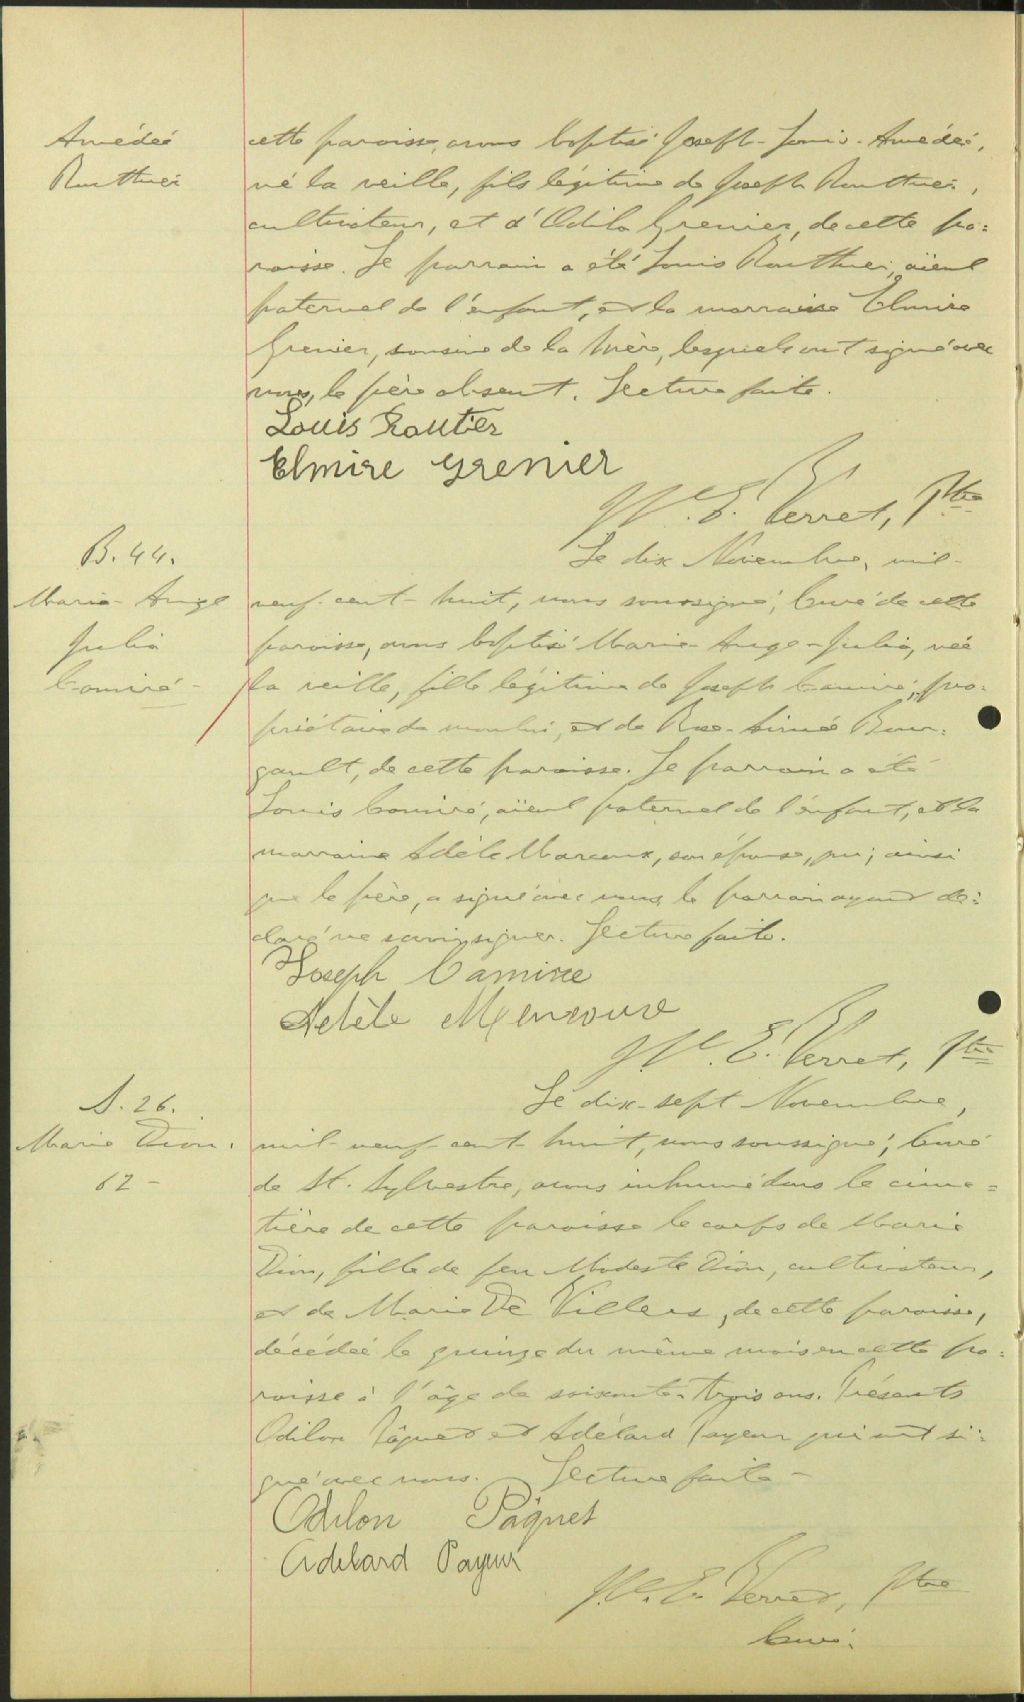 Amédée
Routhier
cette paroisse, avons baptisé Joseph-Louis-Amédée,
né la veille, fils légitime de Joseph Routhier,
cultivateur, et d'Odila Grenier, de cette pa=
roisse. Le parrain a été Louis Routhier, aïeul
paternel de l'enfant, et la marraine Elmire
Grenier, cousine de la mère, lesquels ont signé avec
nous, le père absent. Lecture faite.
Louis Routier
Elmire Grenier
E. Verret, Ptre
B. 44.
Marie-Ange
Julia
Camiré-
Le dix Novembre, mil-
neuf-cent-huit, nous soussigné, Curé de cette
paroisse, avons baptisé Marie-Ange-Julia, née
la veille, fille légitime de Joseph Camiré, pro=
priétaire de moulin, et de Rose-Aimée Bour=
gault, de cette paroisse. Le parrain a été
Louis Camiré, aïeul paternel de l'enfant, et la
marraine Adèle Marcoux, son épouse, qui, ainsi
que le père, a signé avec nous, le parrain ayant dé=
claré ne savoir signer. Lecture faite.
Joseph Camire
Adèle
E. Verret, Ptre
S. 26.
Marie Dion.
62-
Le dix-sept Novembre,
mil-neuf-cent-huit, nous soussigné, Curé
de St. Sylvestre, avons inhumé dans le cime=
tière de cette paroisse le corps de Marie
Dion, fille de feu Modeste Dion, cultivateur,
et de Marie De Villers, de cette paroisse,
décédée le quinze du même mois en cette pa=
roisse à l'âge de soixante-trois ans. Présents
Odilon Pâquet et Adélard Payeur qui ont si=
gné avec nous. Lecture faite-
Odilon Pâquet
Adelard Payeur
E. Verret, Ptre
Curé.